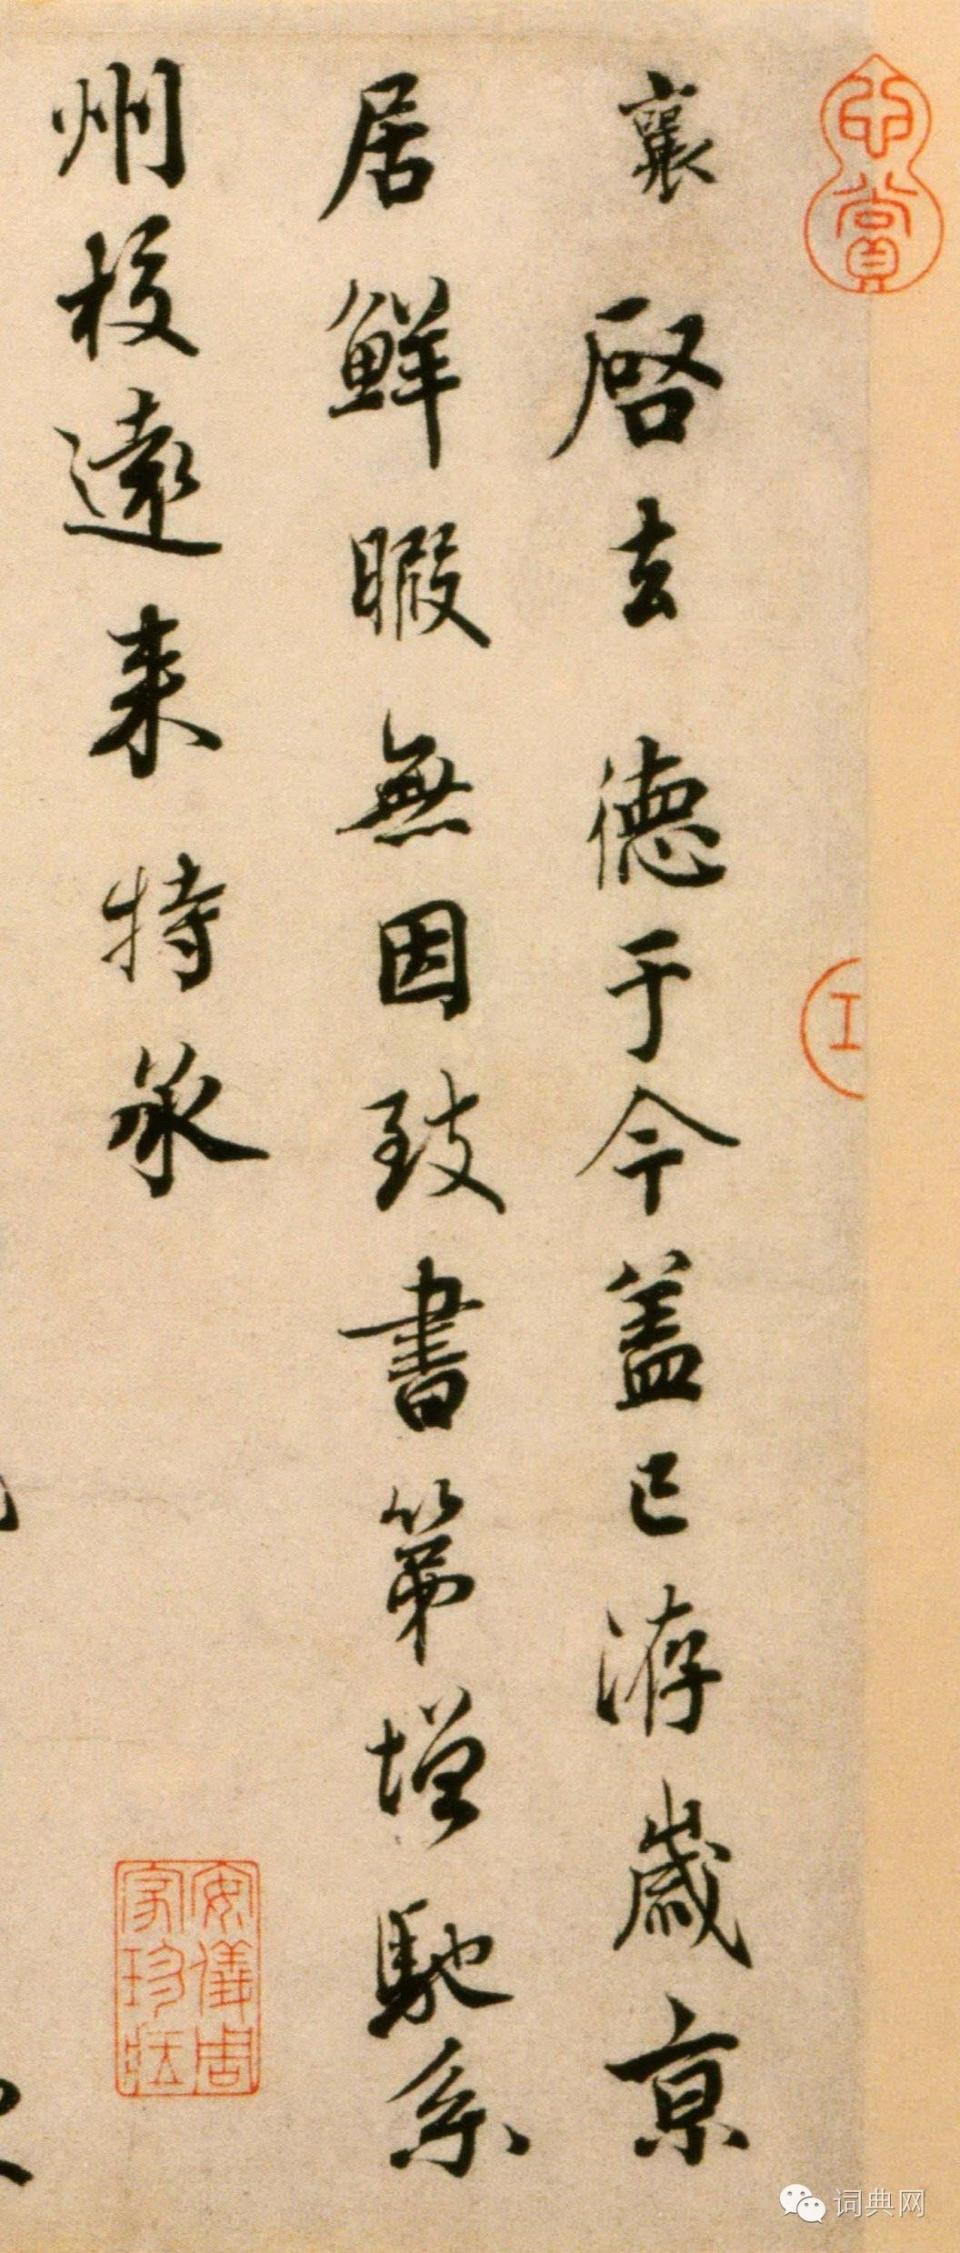 襄啓去德于今蓋已洊歲京
居鮮暇無因致書第增馳系
州校遠来特承
心賞
安儀周
家珍藏
词典网